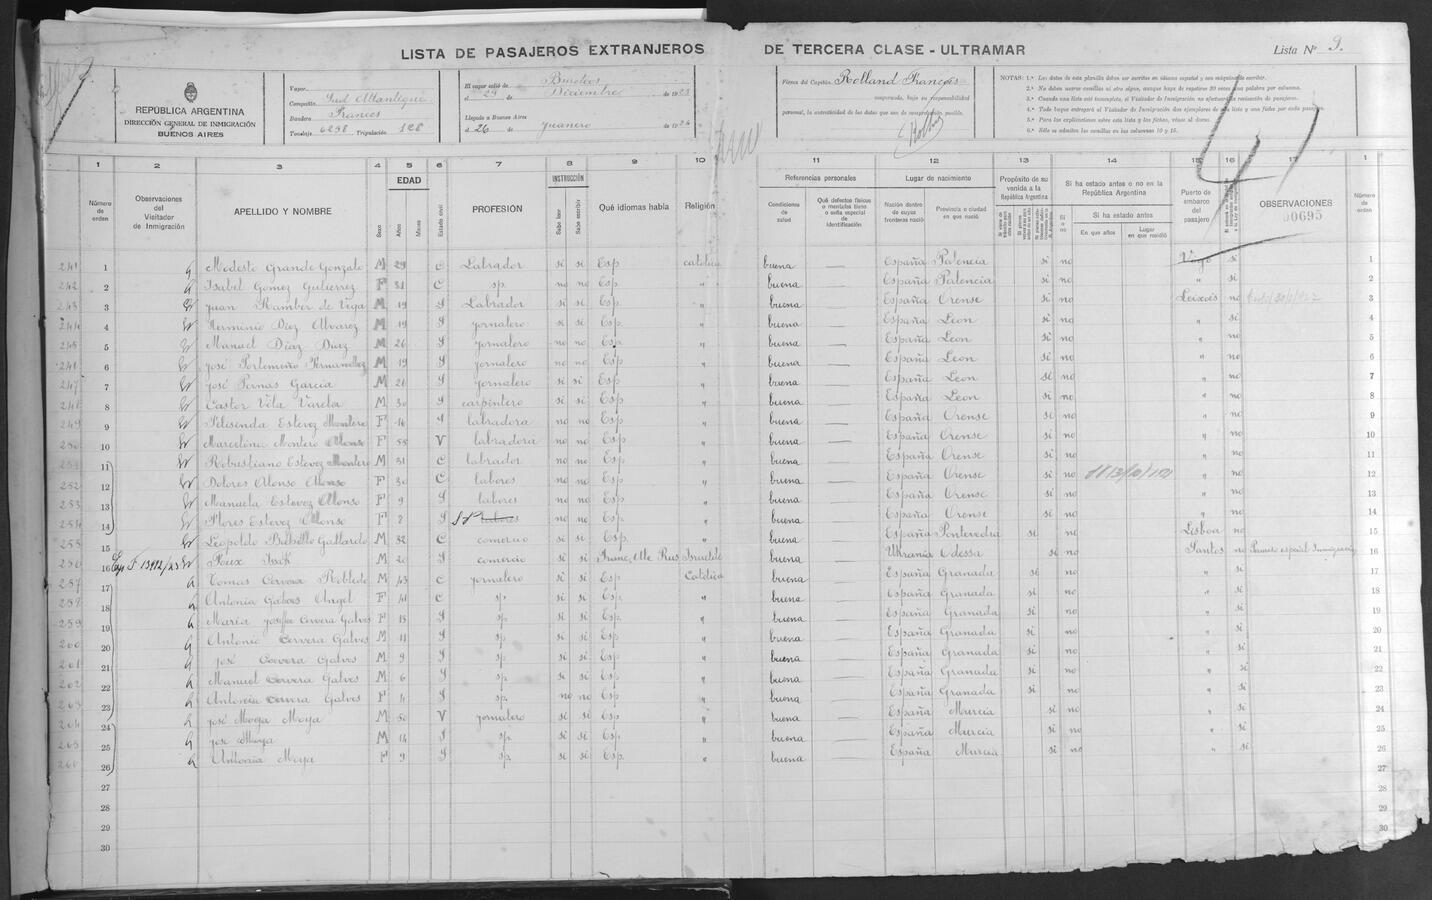 LISTA DE PASAJEROS EXTRANJEROS DE TERCERA CLASE - ULTRAMAR
Lista Nº 9.
REPÚBLICA ARGENTINA
DIRECCIÓN GENERAL DE INMIGRACIÓN
BUENOS AIRES
Vapor
Compañía Sud Atlantique
Bandera Frances
Tonelaje 6298 Tripulación 128
El vapor salió de Burdeos
el 29 de Diciembre de 1923
Llegado a Buenos Aires
el 26 de Juanero de 1924
Firma del Capitán, Rolland Frances
asegurando, bajo su responsabilidad
personal, la autenticidad de los datos que son de su prescripción posible.
NOTAS: 1.ª Los datos de esta planilla deben ser escritos en idioma español y con máquina de escribir.
2.ª No deben usarse comillas ni otro signo, aunque haya de repetirse 30 veces una palabra por columna.
3.ª Cuando una lista esté incompleta, el Visitador de Inmigración no efectuará la revisación de pasajeros.
4.ª Todo buque entregará al Visitador de Inmigración dos ejemplares de esta lista y una ficha por cada pasajero.
5.ª Para las explicaciones sobre esta lista y las fichas, véase al dorso.
6.ª Sólo se admiten las comillas en las columnas 10 y 15.
47
1 2 3 4 5 6 7 8 9 10 11 12 13 14 15 16 17 1
Número de orden
Observaciones del Visitador de Inmigración
APELLIDO Y NOMBRE
Sexo
EDAD
Años
Meses
Estado civil
PROFESIÓN
INSTRUCCIÓN
Sabe leer
Sabe escribir
Qué idiomas habla
Religión
Referencias personales
Condiciones de salud
Qué defectos físicos o mentales tiene o seña especial de identificación
Lugar de nacimiento
Nación dentro de cuyas fronteras nació
Provincia o ciudad en que nació
Propósito de su venida a la República Argentina
Si ha estado antes o no en la República Argentina
Sí o no
Si ha estado antes
En que años
Lugar en que residió
Puerto de embarco del pasajero
OBSERVACIONES
00695
Número de orden
241 1 Modesto Grande Gonzalo M 29 C Labrador si si Esp católica buena España Palencia si no Vigo si 1
242 2 Isabel Gomez Gutierrez F 31 C sp no no Esp " buena España Palencia si no " si 2
243 3 Juan Ramber de Viga M 19 S Labrador si si Esp " buena España Orense si no Leixoes no 3
244 4 Herminio Diez Alvarez M 19 S jornalero si si Esp. " buena España Leon si no " si 4
245 5 Manuel Diaz Diaz M 26 S jornalero no no Esp " buena España Leon si no " no 5
246 6 José Portomeño Fernandez M 19 S jornalero no no Esp " buena España Leon si no " no 6
247 7 José Pernas Garcia M 21 S jornalero si si Esp " buena España Leon si no " no 7
248 8 Castor Vila Varela M 30 S carpintero si si Esp " buena España Leon si no " no 8
249 9 Felisenda Estevez Montero F 16 S labradora no no Esp " buena España Orense si no " no 9
250 10 Marcelina Montero Alonso F 55 V labradora no no Esp " buena España Orense si no " no 10
251 11 Robustiano Estevez Montero M 31 C labrador no no Esp " buena España Orense si no " no 11
252 12 Dolores Alonso Alonso F 30 C labores no no Esp " buena España Orense si no " no 12
253 13 Manuela Estevez Alonso F 9 S labores no no Esp " buena España Orense si no " no 13
254 14 Flores Estevez Alonso F 2 S sp no no Esp " buena España Orense si no " no 14
255 15 Leopoldo Bobillo Gallardo M 32 C comercio si si Esp. " buena España Pontevedra si no Lisboa no 15
256 16 Exp F 13912/23 Roux Isak M 20 S comercio si si Israelita buena Ukrania Odessa si no Santos no 16
257 17 Tomas Cervera Robledo M 43 C jornalero si si Esp Católica buena España Granada si no " si 17
258 18 Antonia Galves Angel F 41 C sp si si Esp. " buena España Granada si no " si 18
259 19 Maria Josefa Cervera Galves F 15 S sp si si Esp " buena España Granada si no " si 19
260 20 Antonio Cervera Galves M 11 S sp si si Esp " buena España Granada si no " si 20
261 21 José Cervera Galves M 9 S sp si si Esp " buena España Granada si no " si 21
262 22 Manuel Cervera Galves M 6 S sp si si Esp " buena España Granada si no " si 22
263 23 Antonia Cervera Galves F 4 S sp. no no Esp " buena España Granada si no " si 23
264 24 José Moya Moya M 50 V jornalero si si Esp " buena España Murcia si no " si 24
265 25 José Moya M 14 S sp si si Esp " buena España Murcia si no " si 25
266 26 Antonia Moya F 9 S sp. si si Esp. " buena España Murcia si no " si 26
27 27
28 28
29 29
30 30